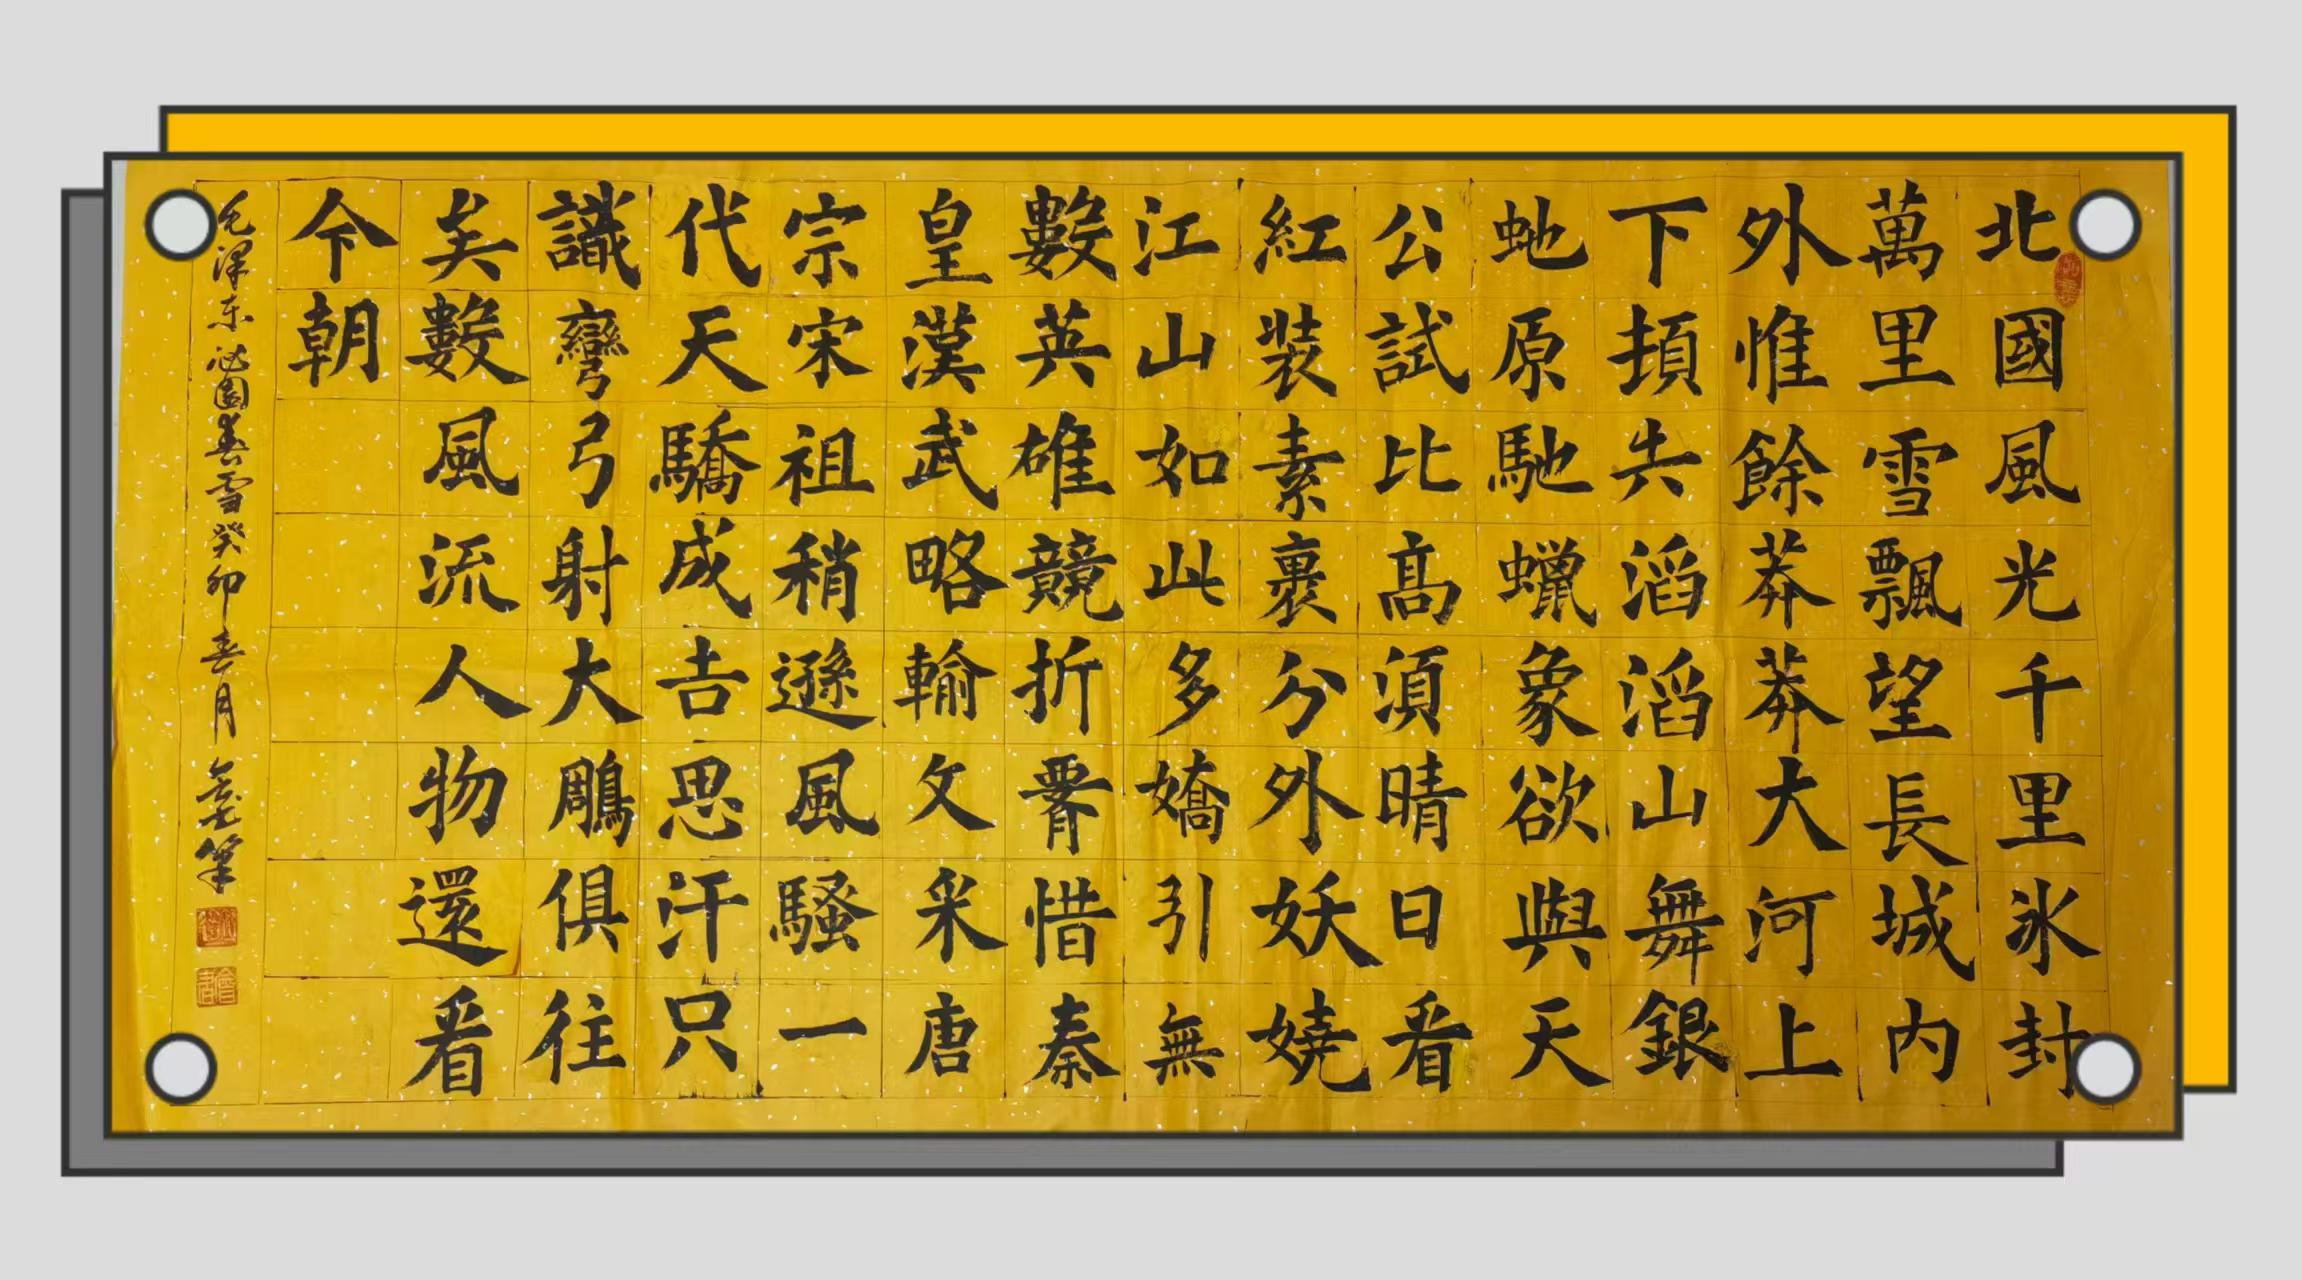 北國風光千里氷封
萬里雪飄望長城内
外惟餘莽莽大河上
下頓失滔滔山舞銀
虵原馳蠟象欲與天
公試比高須晴日看
紅裝素裹分外妖嬈
江山如此多嬌引無
數英雄競折惜秦
皇漢武略輸文采唐
宗宋祖稍遜風騷一
代天驕成吉思汗只
識彎弓射大鵰俱往
矣數風流人物還看
今朝
毛澤东沁園春雪癸卯春月